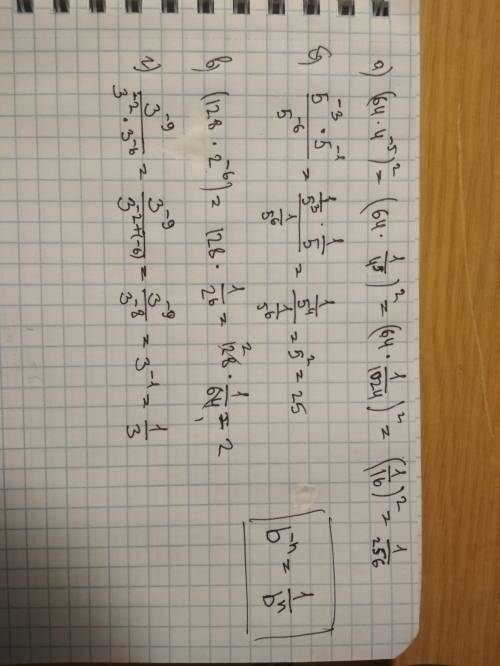 а) (64 · 4⁻⁵)² = (64 · 1/4⁵)² = (64 · 1/1024)² = (1/16)² = 1/256
б) (5⁻³ · 5⁻¹)/5⁻⁶ = (1/5³ · 1/5)/(1/5⁶) = (1/5⁴)/(1/5⁶) = 5² = 25
в) (128 · 2⁻⁶) = 128 · 1/2⁶ = 128 2 · 1/64 1 = 2
г) 3⁻⁹/(3⁻² · 3⁻⁶) = 3⁻⁹/3⁻²⁺⁽⁻⁶⁾ = 3⁻⁹/3⁻⁸ = 3⁻¹ = 1/3
b⁻ⁿ = 1/bⁿ